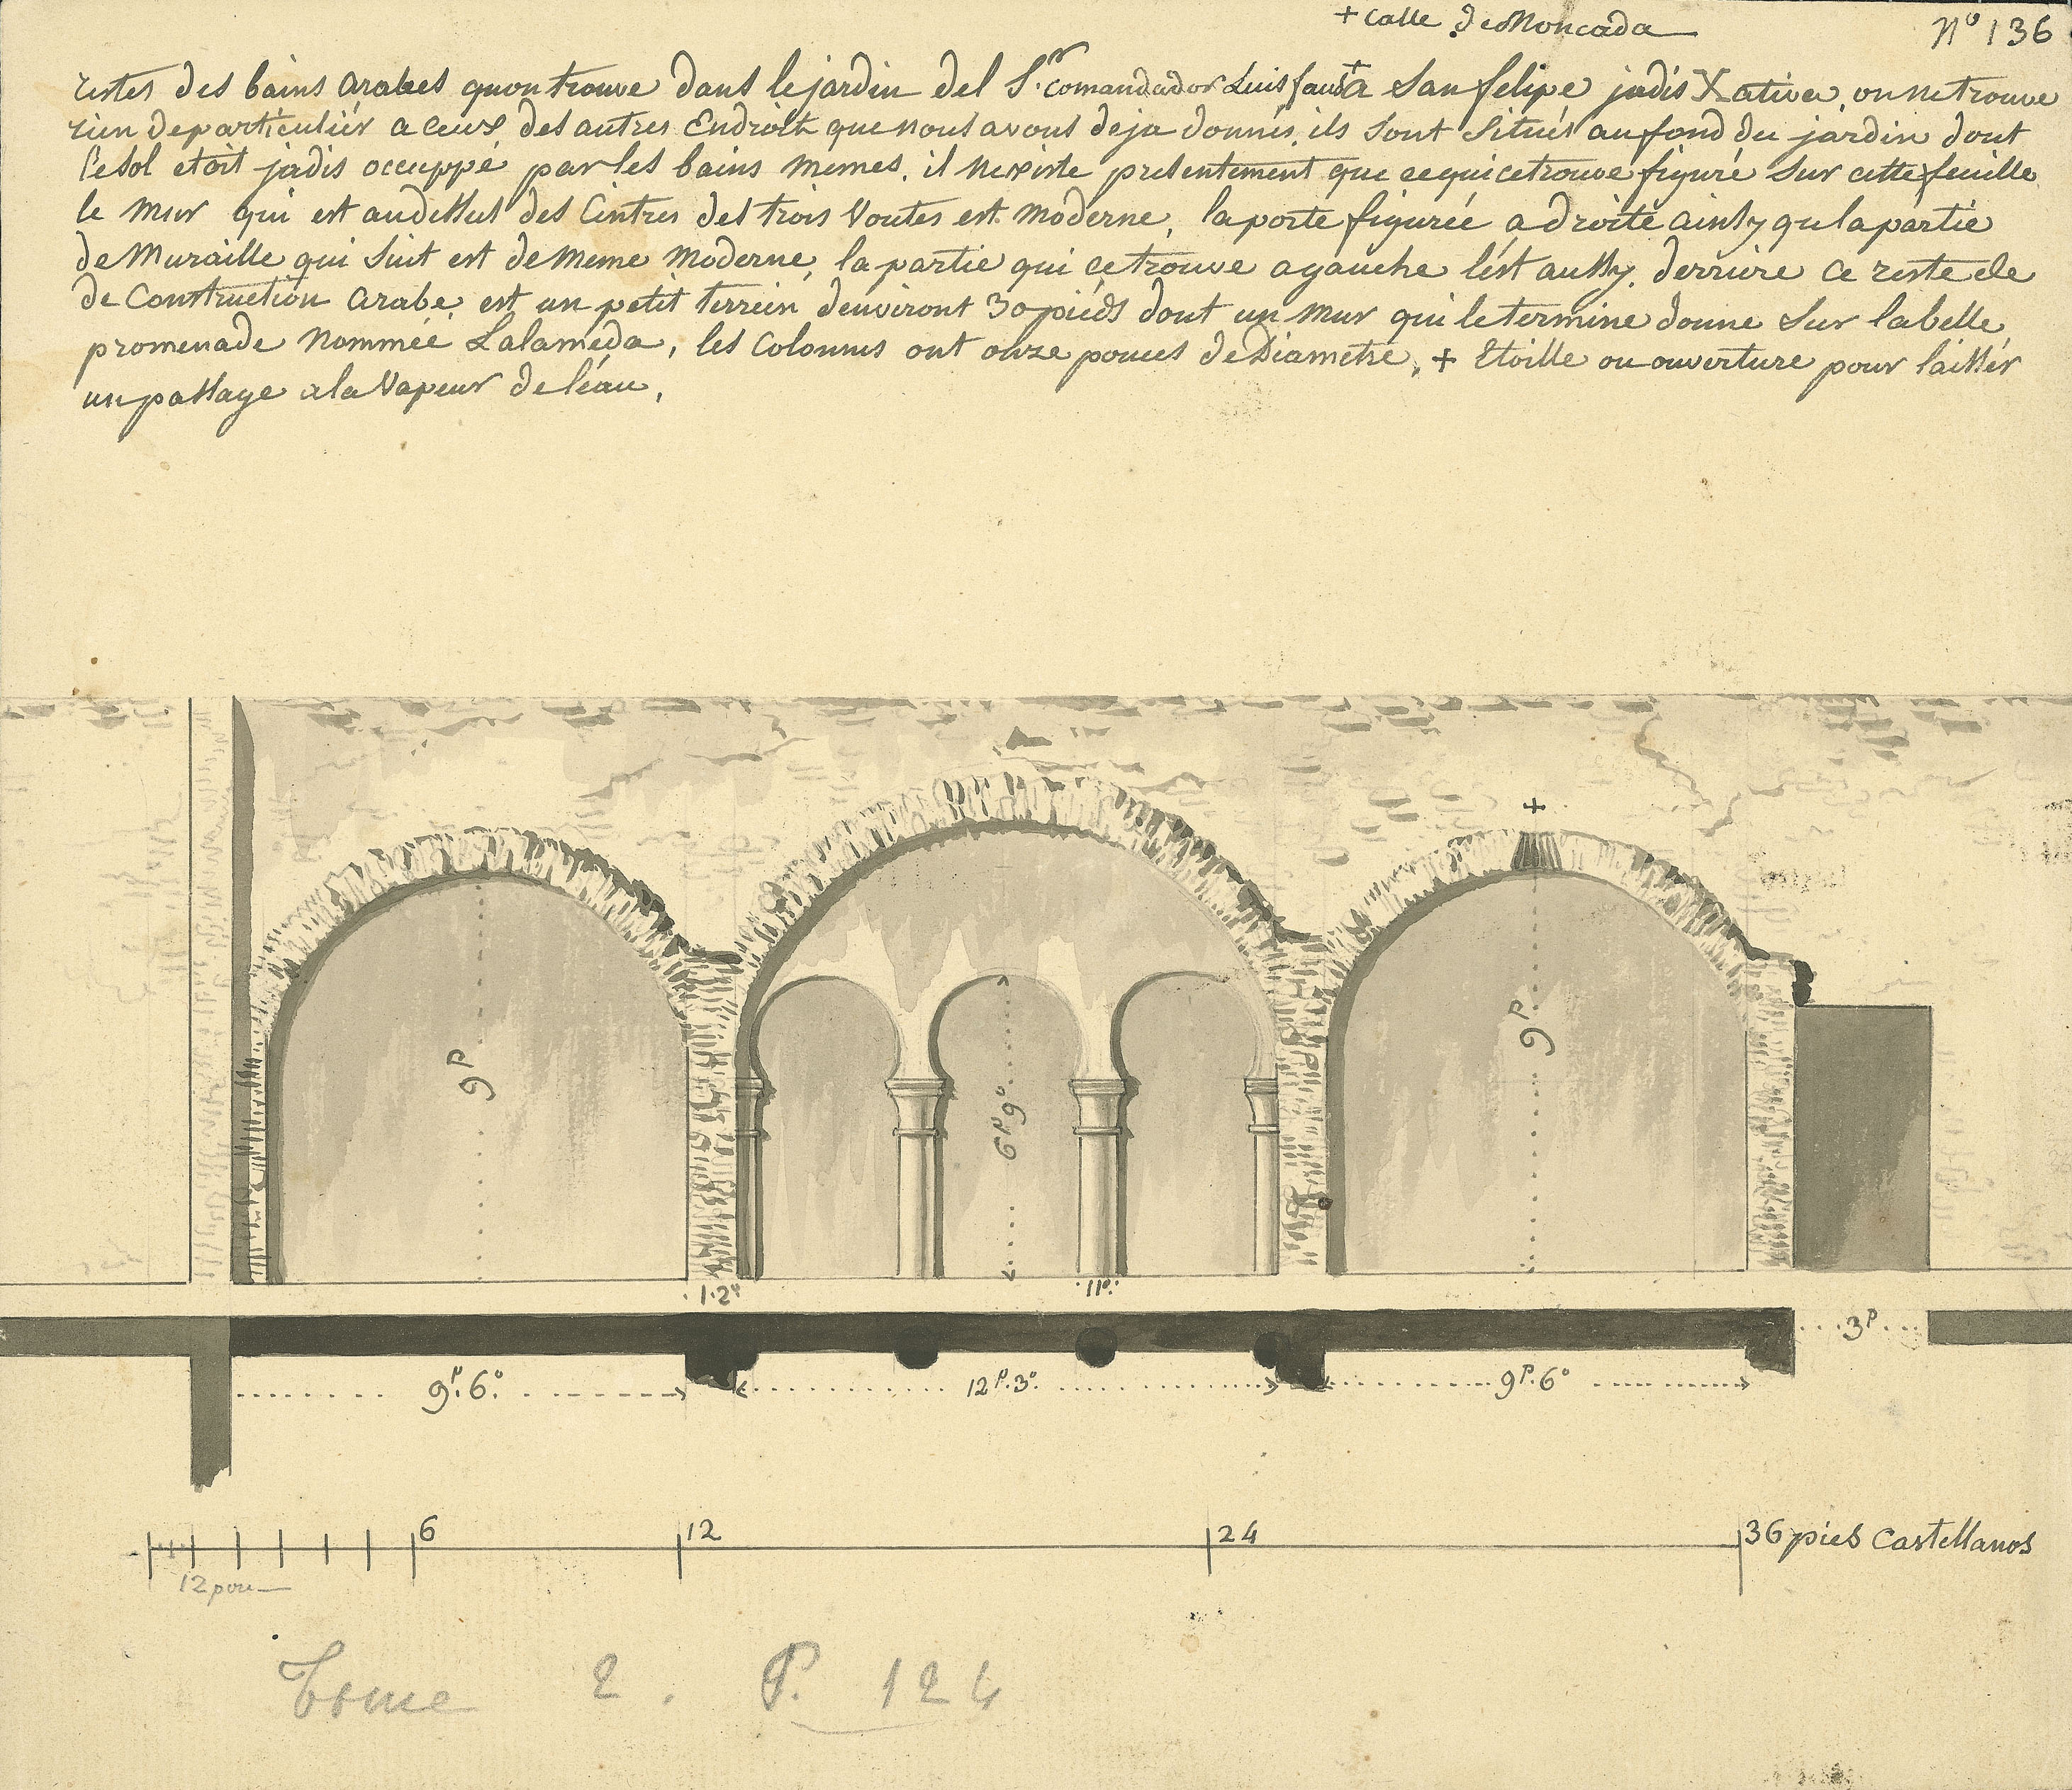 + Calle de Moncada
N° 136
restes des bains arabes qu'on trouve dans le jardin del S.r Comandador Luis faus + a San felipe jadis Xativa, on ne trouve
rien de particuliér a ceux des autres Endroits que nous avons deja donnés, ils sont situés au fond du jardin dont
le sol etoit jadis occuppé par les bains memes, il nexiste presentement que ce qui ce trouve figuré sur cette feuille
le mur qui est audessus des Cintres des trois Voutes est moderne, la porte figurée a droite ainsy qu la partie
de Muraille qui suit est de meme Moderne, la partie qui ce trouve agauche l'ést aussy. derriere ce reste de
de Construction arabe est un petit terrein denviront 30 piéds dont un mur qui le termine donne sur la belle
promenade Nommée Lalameda, les Colonnes ont onze pouces de Diametre, + Etoille ou ouverture pour laissér
un passage a la Vapeur de l'éau,
+
9P
6P 9°
9P
1·2°
11°
3P
9P.6°
12P.3°
9P.6°
6 12 24 36 pies Castellanos
12 pou
Tome 2. P. 124